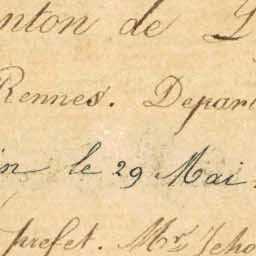 nton de
Rennes. Depar
in le 29 Mai
prefet. Mr